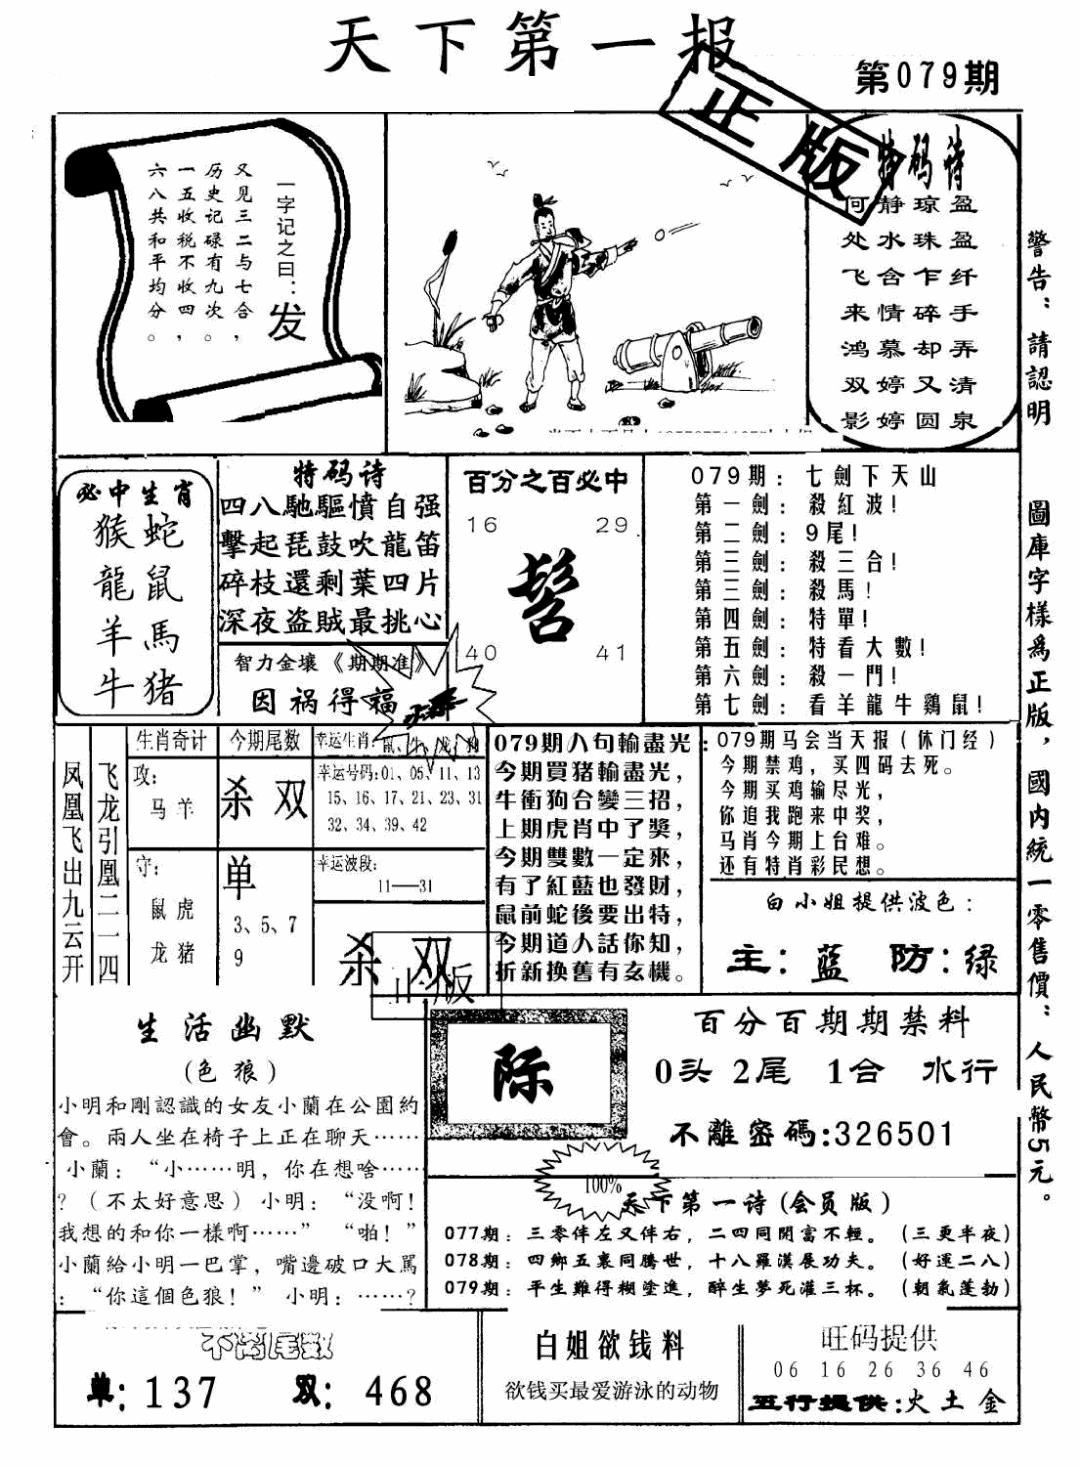 天下第一报
第079期
正版
一字记之曰：发
又见三二与七合，
历史记碌有九次。
一五收税不收四，
六八共和平均分。
特码诗
何静琼盈
处水珠盈
飞含乍纤
来情碎手
鸿慕却弄
双婷又清
影婷圆泉
警告：請認明圖庫字樣為正版，國内統一零售價：人民幣5元。
必中生肖
猴蛇
龍鼠
羊馬
牛猪
特码诗
四八馳驅憤自强
擊起琵鼓吹龍笛
碎枝還剩葉四片
深夜盗賊最挑心
智力金壤《期期准》
因祸得福
百分之百必中
16 29
髻
40 41
079期：七劍下天山
第一劍：殺紅波！
第二劍：9尾！
第三劍：殺三合！
第三劍：殺馬！
第四劍：特單！
第五劍：特看大數！
第六劍：殺一門！
第七劍：看羊龍牛鷄鼠！
凤凰飞出九云开
飞龙引凰二一四
生肖奇计
攻：
马羊
守：
鼠虎
龙猪
今期尾数
杀双
单
3、5、7
9
幸运生肖：鼠、牛、龙、狗
幸运号码：01、05、11、13
15、16、17、21、23、31
32、34、39、42
幸运波段：
11——31
杀双
正版
079期八句輸盡光：
今期買猪輸盡光，
牛衝狗合變三招，
上期虎肖中了獎，
今期雙數一定來，
有了紅藍也發財，
鼠前蛇後要出特，
今期道人話你知，
折新换舊有玄機。
079期马会当天报（休门经）
今期禁鸡，买四码去死。
今期买鸡输尽光，
你追我跑来中奖，
马肖今期上台难。
还有特肖彩民想。
白小姐提供波色：
主：蓝 防：绿
生活幽默
(色狼)
小明和剛認識的女友小蘭在公園約
會。兩人坐在椅子上正在聊天……
小蘭：“小……明，你在想啥……
？（不太好意思）小明：“没啊！
我想的和你一樣啊……” “啪！”
小蘭給小明一巴掌，嘴邊破口大駡
：“你這個色狼！” 小明：……？
际
百分百期期禁料
0头 2尾 1合 水行
不離密碼:326501
100%
天下第一诗(会员版)
077期：三零伴左又伴右，二四同開富不輕。（三更半夜）
078期：四鄉五裏同騰世，十八羅漢展功夫。（好運二八）
079期：平生難得糊塗進，醉生夢死灌三杯。（朝氣蓬勃）
不离尾数
单：137 双：468
白姐欲钱料
欲钱买最爱游泳的动物
旺码提供
06 16 26 36 46
五行提供：火土金